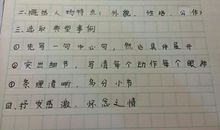 二.概括人物特点：外貌、性格、品格
三.选取典型事例
①先写一句中心句，然后具体展开
②突出细节，写清每个动作每个眼神
③条理清晰，多分小节
四.抒发感激、怀念之情